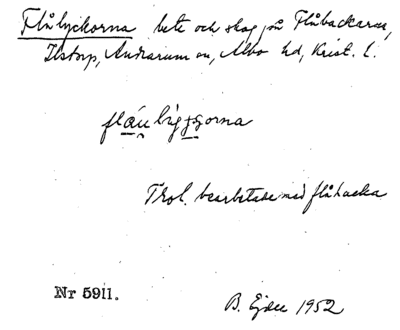 Flålyckorna bete och skog på Flåbackarna,
Ilstorp, Andrarum sn, Albo hd, Krist. l.
flåu lyggorna
Trol. bearbetade med flåhacka
Nr 5911.
B. Ejder 1952